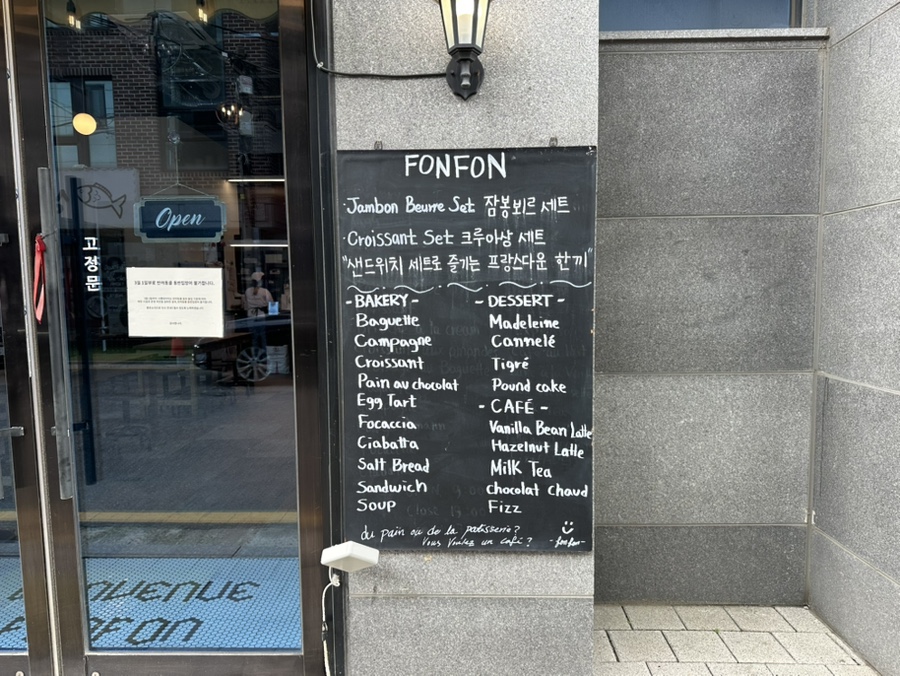 FONFON
·Jambon Beurre Set 잠봉뵈르 세트
·Croissant Set 크루아상 세트
"샌드위치 세트로 즐기는 프랑스다운 한끼"
- BAKERY -
Baguette
Campagne
Croissant
Pain au chocolat
Egg Tart
Focaccia
Ciabatta
Salt Bread
Sandwich
Soup
- DESSERT -
Madeleine
Cannelé
Tigré
Pound cake
- CAFÉ -
Vanilla Bean Latte
Hazelnut Latte
Milk Tea
Chocolat Chaud
Fizz
du pain ou de la patisserie?
Vous Voulez un café?
-fonfon-
Open
고정문
FONFON